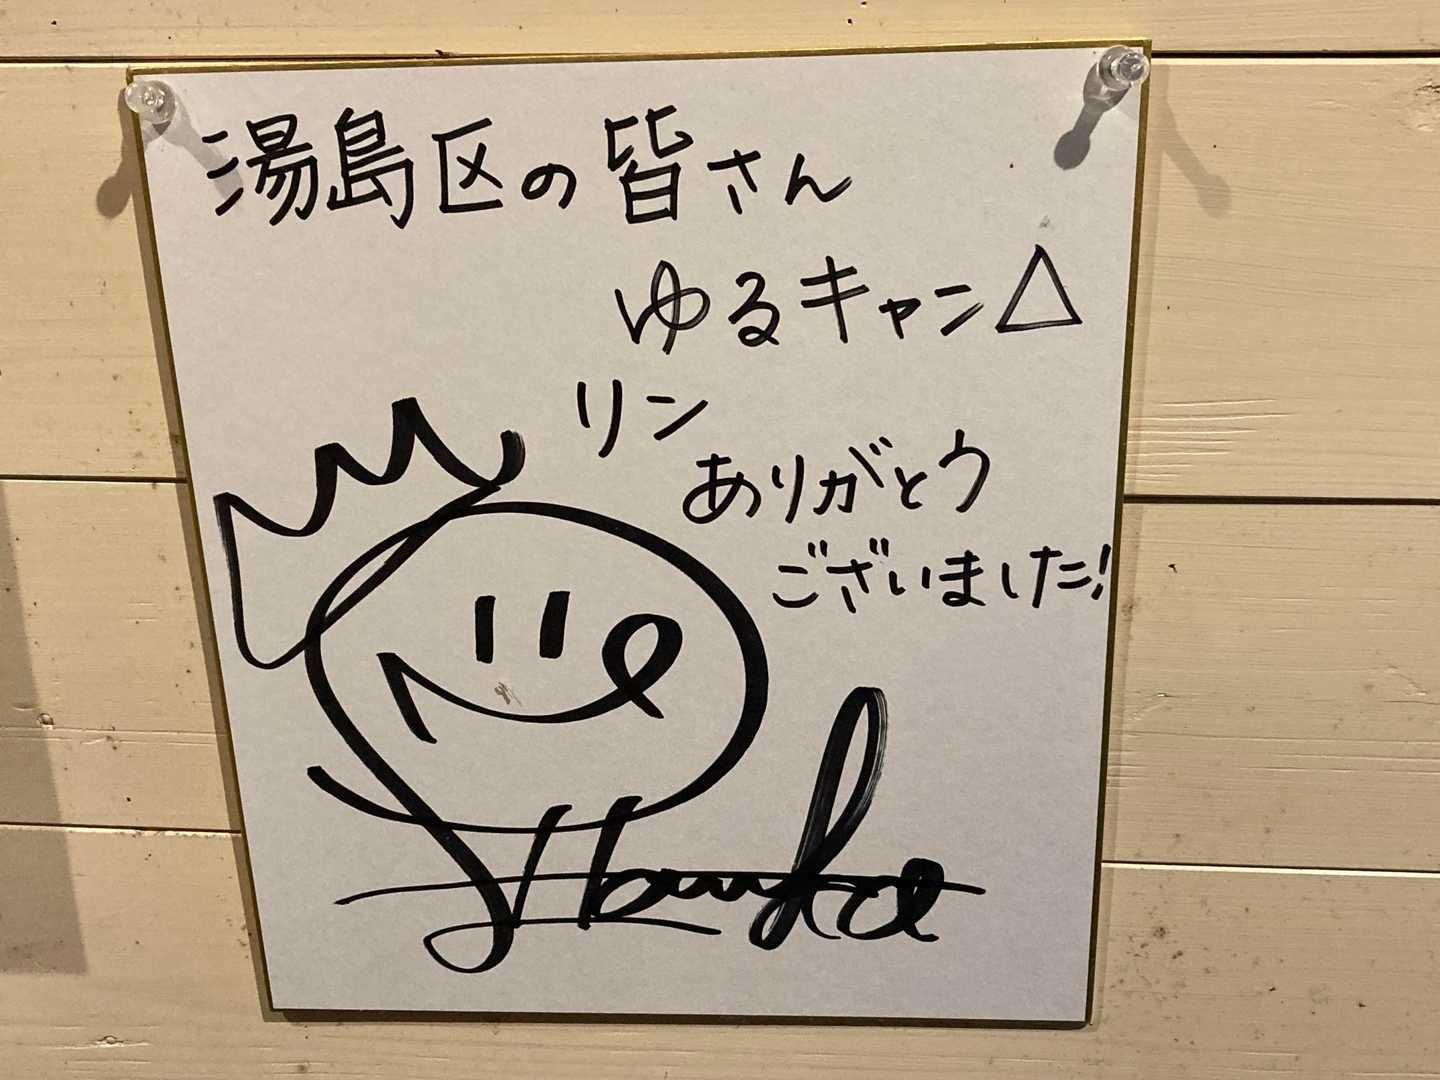 湯島区の皆さん
ゆるキャン△
リン
ありがとう
ございました!
Haruka